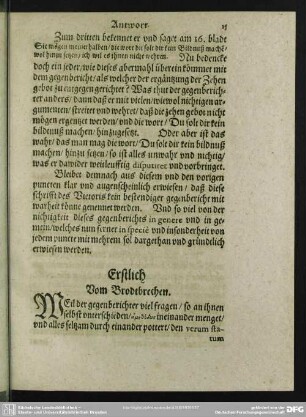 Antwort. 15
Zum dritten bekennet er und saget am 16. blade
Sie mögen meinethalben / die wort du solt dir kein Bildnuß mach&
wol hinzu setzen / ich wil es ihnen nicht wehren. Nu bedencke
doch ein jeder / wie dieses abermahl überein kömmet mit
dem gegenbericht / als welcher der ergäntzung der Zehen
gebot sich entgegen gerichtet? Was thut der gegenbericht-
er anders / dann daß er mit vielen / wiewol nichtigen ar-
gumenten / streitet und wehret / daß die zehen gebot nicht
mögen ergäntzet werden / und die wort / Du solt dir kein
bildnuß machen / hinzugesetzt. Oder aber ist das
wahr / das man mag die wort / Du solt dir kein bildnuß
machen / hinzu setzen / so ist alles unwahr und nichtig /
was er dawider weitleufftig disputiret und vorbringet.
Bleibet demnach aus diesem und den vorigen
puncten klar und augenscheinlich erwiesen / daß diese
schrifft des Victoris kein bestendiger gegenbericht mit
warheit könne genennet werden. Und so viel von der
nichtigkeit dieses gegenberichts in genere und in ge-
mein / welches nun ferner in specie und insonderheit von
jedem puncte mit mehrem sol dargethan und gründlich
erwiesen werden.
Erstlich
Vom Brodtbrechen.
WEil der gegenberichter viel fragen / so an ihnen
selbst unterschieden / ineinander menget /
und alles seltzam durch einander pottert / den verum sta-
tum